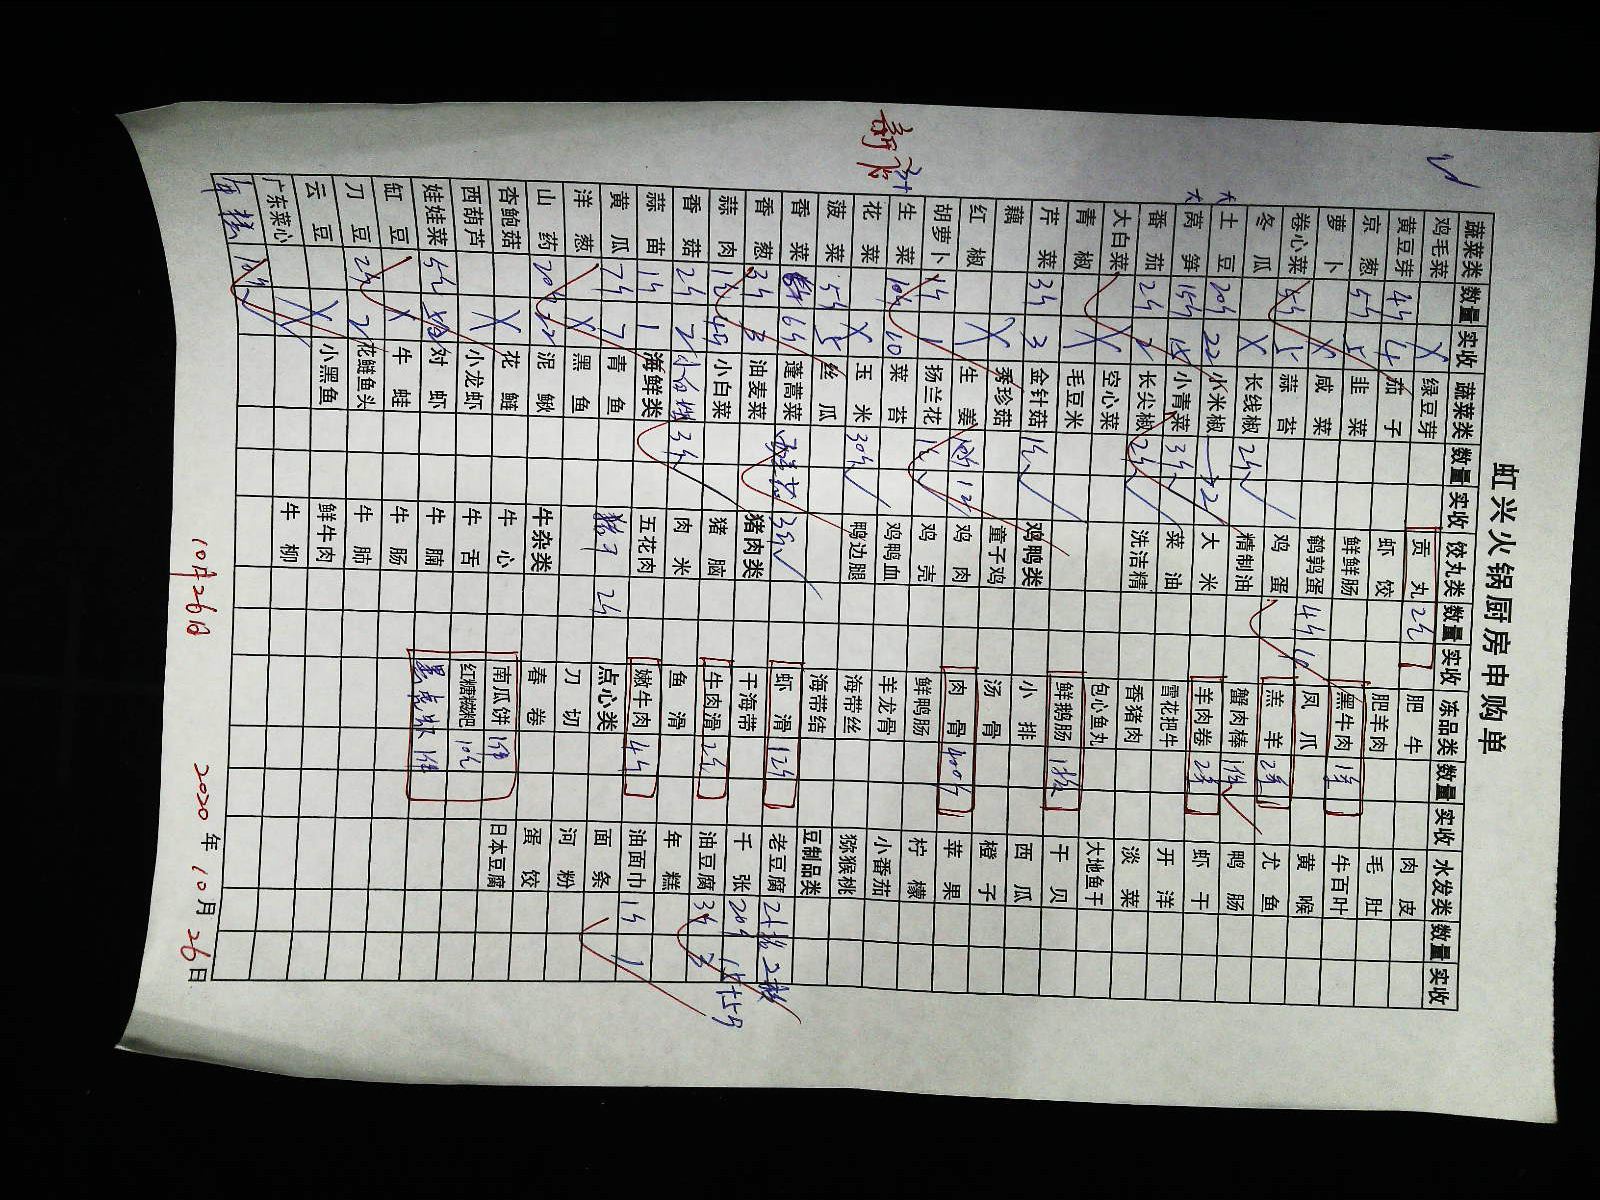 虹兴火锅厨房申购单
蔬菜类 数量 实收 蔬菜类 数量 实收 饺丸类 数量 实收 冻品类 数量 实收 水发类 数量 实收
鸡毛菜 X 绿豆芽 贡丸 2斤 肥牛 肉皮
黄豆芽 4斤 4 茄子 虾饺 肥羊肉 毛肚
京葱 5斤 5 韭菜 鲜鲜肠 黑牛肉 1条 牛百叶
萝卜 X 咸菜 鹌鹑蛋 4斤 4 凤爪 黄喉
卷心菜 5斤 5 蒜苔 鸡蛋 羔羊 2条 尤鱼
冬瓜 X 长线椒 2斤 精制油 蟹肉棒 1件 鸭肠
大土豆 20斤 22 小米椒 2 大米 羊肉卷 2条 虾干
大莴笋 15斤 15 小青菜 3斤 菜油 雪花把牛 开洋
番茄 2斤 2 长尖椒 2斤 洗洁精 香猪肉 淡菜
大白菜 X 空心菜 包心鱼丸 大地鱼干
青椒 X 毛豆米 鲜鹅肠 1板 干贝
芹菜 3斤 3 金针菇 1斤 鸡鸭类 小排 西瓜
藕 X 秀珍菇 童子鸡 汤骨 橙子
红椒 X 生姜 12 鸡肉 肉骨 400斤 苹果
胡萝卜 1斤 1 扬兰花 1斤 鸡壳 鲜鸭肠 柠檬
生菜 10斤 10 菜苔 鸡鸭血 羊龙骨 小番茄
花菜 X 玉米 30斤 鸭边腿 海带丝 猕猴桃
菠菜 5斤 5 丝瓜 海带结 豆制品类
香菜 6斤 蓬蒿菜 3斤 虾滑 12斤 老豆腐 2板 2板
香葱 3斤 3 油麦菜 猪肉类 干海带 千张 20斤 15+5斤
蒜肉 1斤 小白菜 猪脑 牛肉滑 2斤 油豆腐 3斤 3
香菇 2斤 2 3斤 肉米 鱼滑 年糕
蒜苗 1斤 1 海鲜类 五花肉 嫩牛肉 4斤 油面巾 1斤 1
黄瓜 7斤 7 青鱼 猪肝 2斤 点心类 面条
洋葱 X 黑鱼 刀切 河粉
山药 20斤 22 泥鳅 牛杂类 春卷 蛋饺
杏鲍菇 X 花鲢 牛心 南瓜饼 1件 日本豆腐
西葫芦 小龙虾 牛舌 红糖糍粑 10斤
娃娃菜 5斤 对虾 牛腩 黑虎虾 1件
缸豆 X 牛蛙 牛肠
刀豆 2斤 2 花鲢鱼头 牛肺
云豆 X 小黑鱼 鲜牛肉
广东菜心 X 牛柳
10斤
10月26日 2020年10月26日